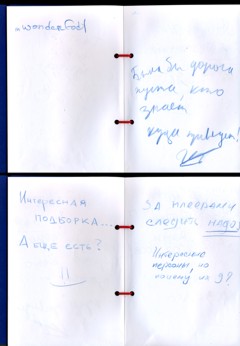 wonderfod1
Была бы дорога
пуста, кто
знает
куда приведет!
Интересная
подборка...
А еще есть?
ЗА ПЛЕЕРАМИ
СЛЕДИТЬ НАДО
Интересные
персоны, но
почему их 9?